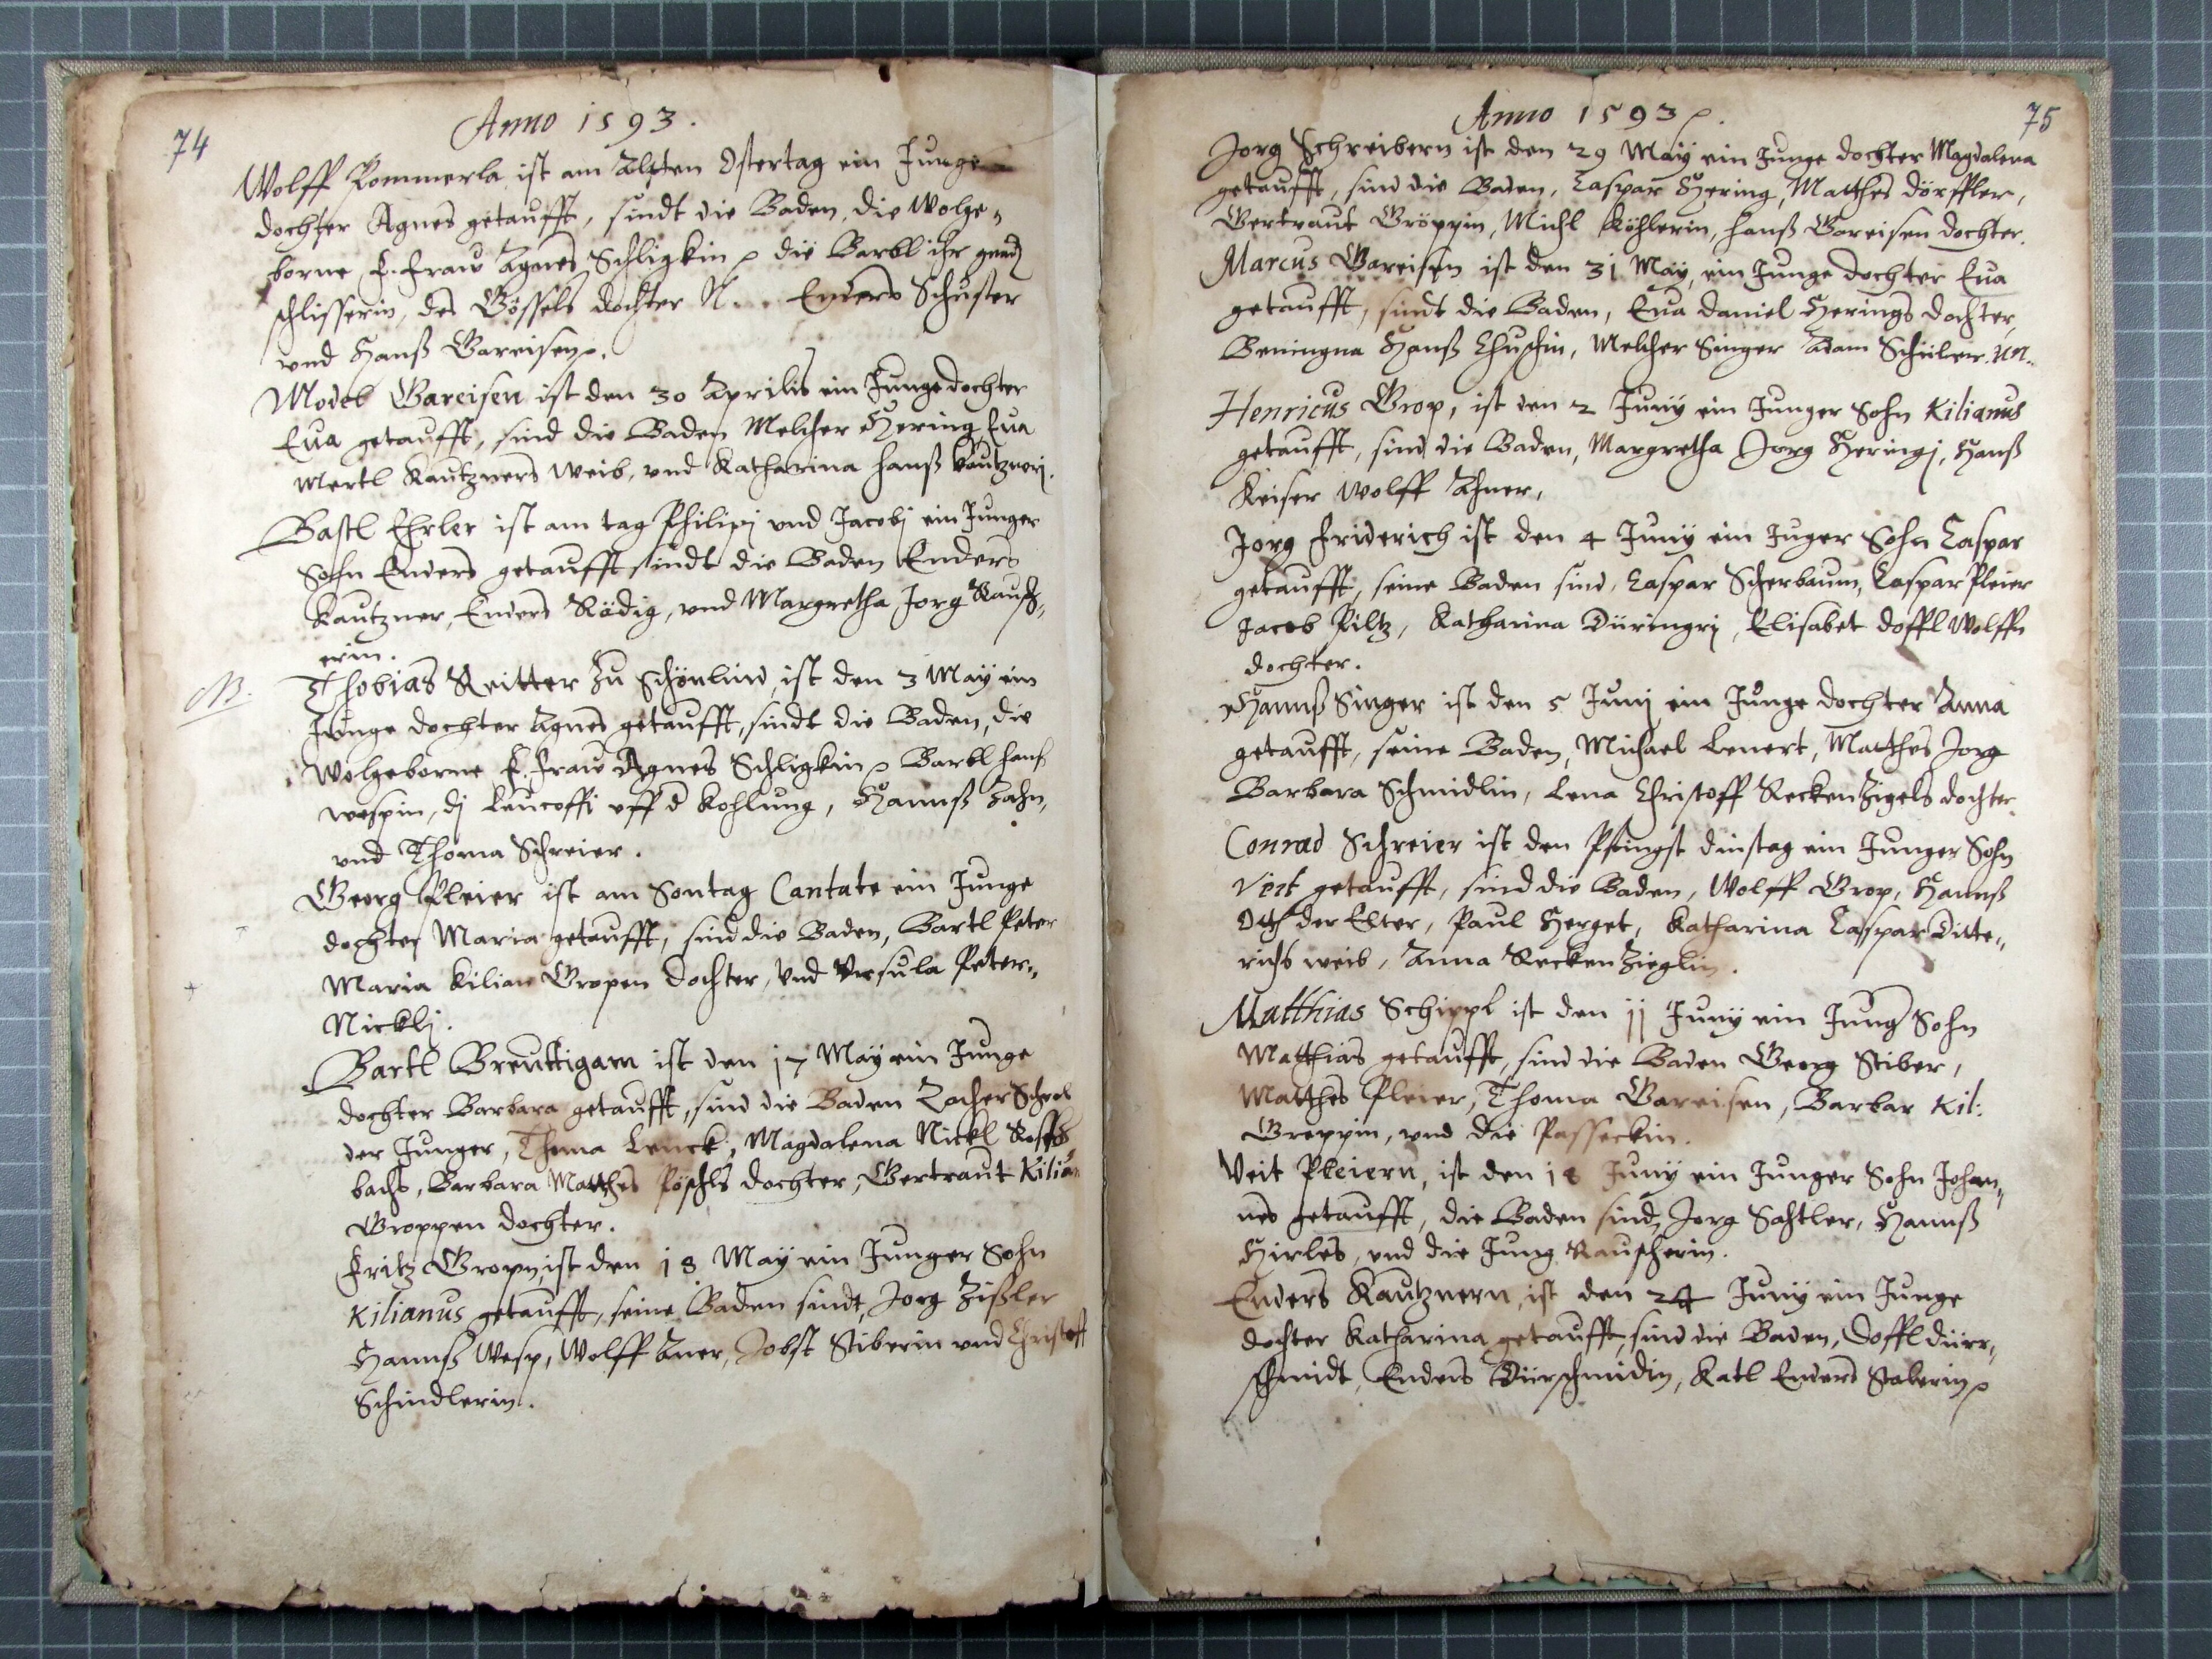 74
Anno 1593.
Wolff Pommerla ist am Alten Ostertag ein Junge
dochter Agnes getaufft, sindt die Baden, die Wolge„
borne F. Fraw Agnes Schligkin die Barbl ihr
schlisserin, des Gössels dochter N... Enders Schuster
vnd Hanß Gareisen.
Model Gareisen ist den 30 Aprilis ein Junge dochter
Eua getaufft, sind die Baden Melcher Hering Eua
Mertl Kautzners weib, vnd Katharina hanß
Bastl Ehrler ist am tag Philipj vnd Jacobj ein Junger
Sohn Enders getaufft sindt die Baden Enders
Kautzner, Enders Rödig, vnd Margretha Jorg Rausch„
erin.
NB.
Thobias Reitter zu Schönlind, ist den 3 May ein
Junge dochter Agnes getaufft, sindt die Baden, die
Wolgeborne F. Fraw Agnes Schligkin Barbl hans
wespin, dj uff d Kohlung, Hannß Zahn,
vnd Thoma Schreier.
Georg Pleier ist am Sontag Cantate ein Junge
dochter Maria getaufft, sind die Baden, Bartl Peter
Maria Kilian Gropen dochter, vnd Vrsula Peter„
Nicklj.
Bartl Breuttigam ist den 17 May ein Junge
dochter Barbara getaufft, sind die Baden Zacher
der Junger, Thoma Lenck, Magdalena Nickl Rosch
bachs, Barbara Matthes Pöschls dochter, Gertraut Kilian
Groppen dochter.
Fritz Gropn, ist den 18 May ein Junger Sohn
Kilianus getaufft, seine Baden sindt, Jorg Zißler
Hannß Wesp, Wolff Aner, Jobst Stiberin vnd Christoff
Schindlerin.
75
Anno 1593
Jorg Schreibern ist den 29 May ein Junge dochter Magdalena
getaufft, sind die Baden, Caspar Hering, Matthes dörffler,
Gertraut Gröppin, Michl Köhlerin, hanß Gareisen dochter.
Marcus Gareisen ist den 31 May, ein Junge dochter Eua
getaufft, sindt die Baden, Eua Daniel Herings dochter,
Beningna Hanß, Melcher Singer Adam Schüler
Henricus Grop, ist den 2 Juny ein Junger Sohn Kilianus
getaufft, sind die Baden, Margretha Jorg Heringj, Hanß
Keiser Wolff Ahner,
Jorg Friderich ist den 4 Juny ein Juger Sohn Caspar
getaufft, seine Baden sind, Caspar Scherbaum, Caspar Pleier
Jacob Piltz, Katharina Düringrj, Elisabet doffl Wolffn
dochter.
Hannß Singer ist den 5 Junj ein Junge dochter Anna
getaufft, seine Baden, Michael Lenert, Matthes Jorg
Barbara Schmidlin, Lena Christoff Reckenzigels dochter.
Conrad Schreier ist den Pfingst dinstag ein Junger Sohn
Veit getaufft, sind die Baden, Wolff Grop, Hannß
Ott der Elter, Paul Herget, Katharina Caspar Ditte„
richs weib, Anna Reckenzieglin.
Matthias Schippl ist den 11 Juny ein Jung Sohn
Matthias getaufft, sind die Baden Georg Stiber,
Matthes Pleier, Thoma Gareisen, Barbar Kil:
Groppin, vnd die Passeckin.
Veit Pleiern, ist den 18 Juny ein Junger Sohn Johan„
nes getaufft, die Baden sind, Jorg Sattler, Hannß
Hirles, vnd die Jung Rauscherin.
Enders Kautznern, ist den 24 Juny ein Junge
dochter Katharina getaufft, sind die Baden, Doffl Dürr„
schmidt, Enders Dürschmidin, Katl Enders Stalerin